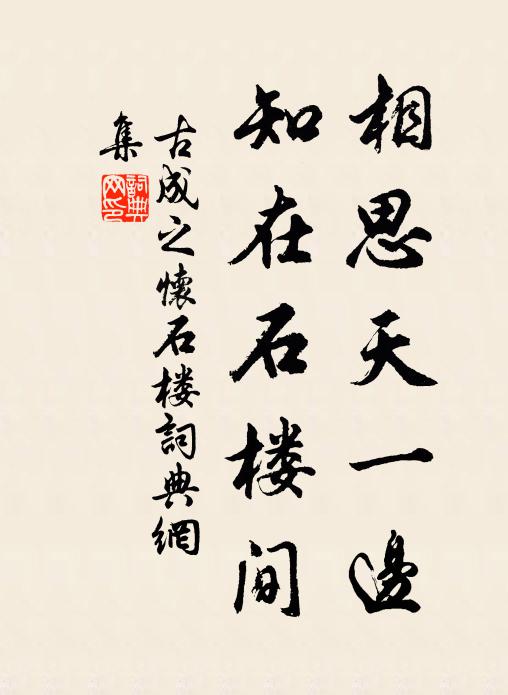 相思天一邊
知在石楼間
古成之懷石楼詞典網
集
詞典網印